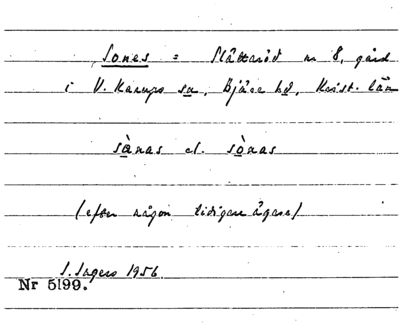 Sones = Slättaröd nr 8, gård
i V. Karups sn, Bjäre hd, Krist. län
sànas el. sònas
(efter någon tidigare ägare)
S. Sagers 1956
Nr 5199.